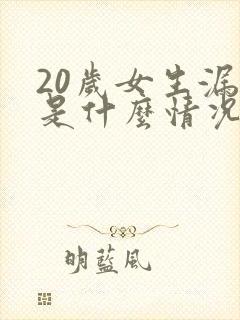 20歲女生漏
是什麼情況
明藍風